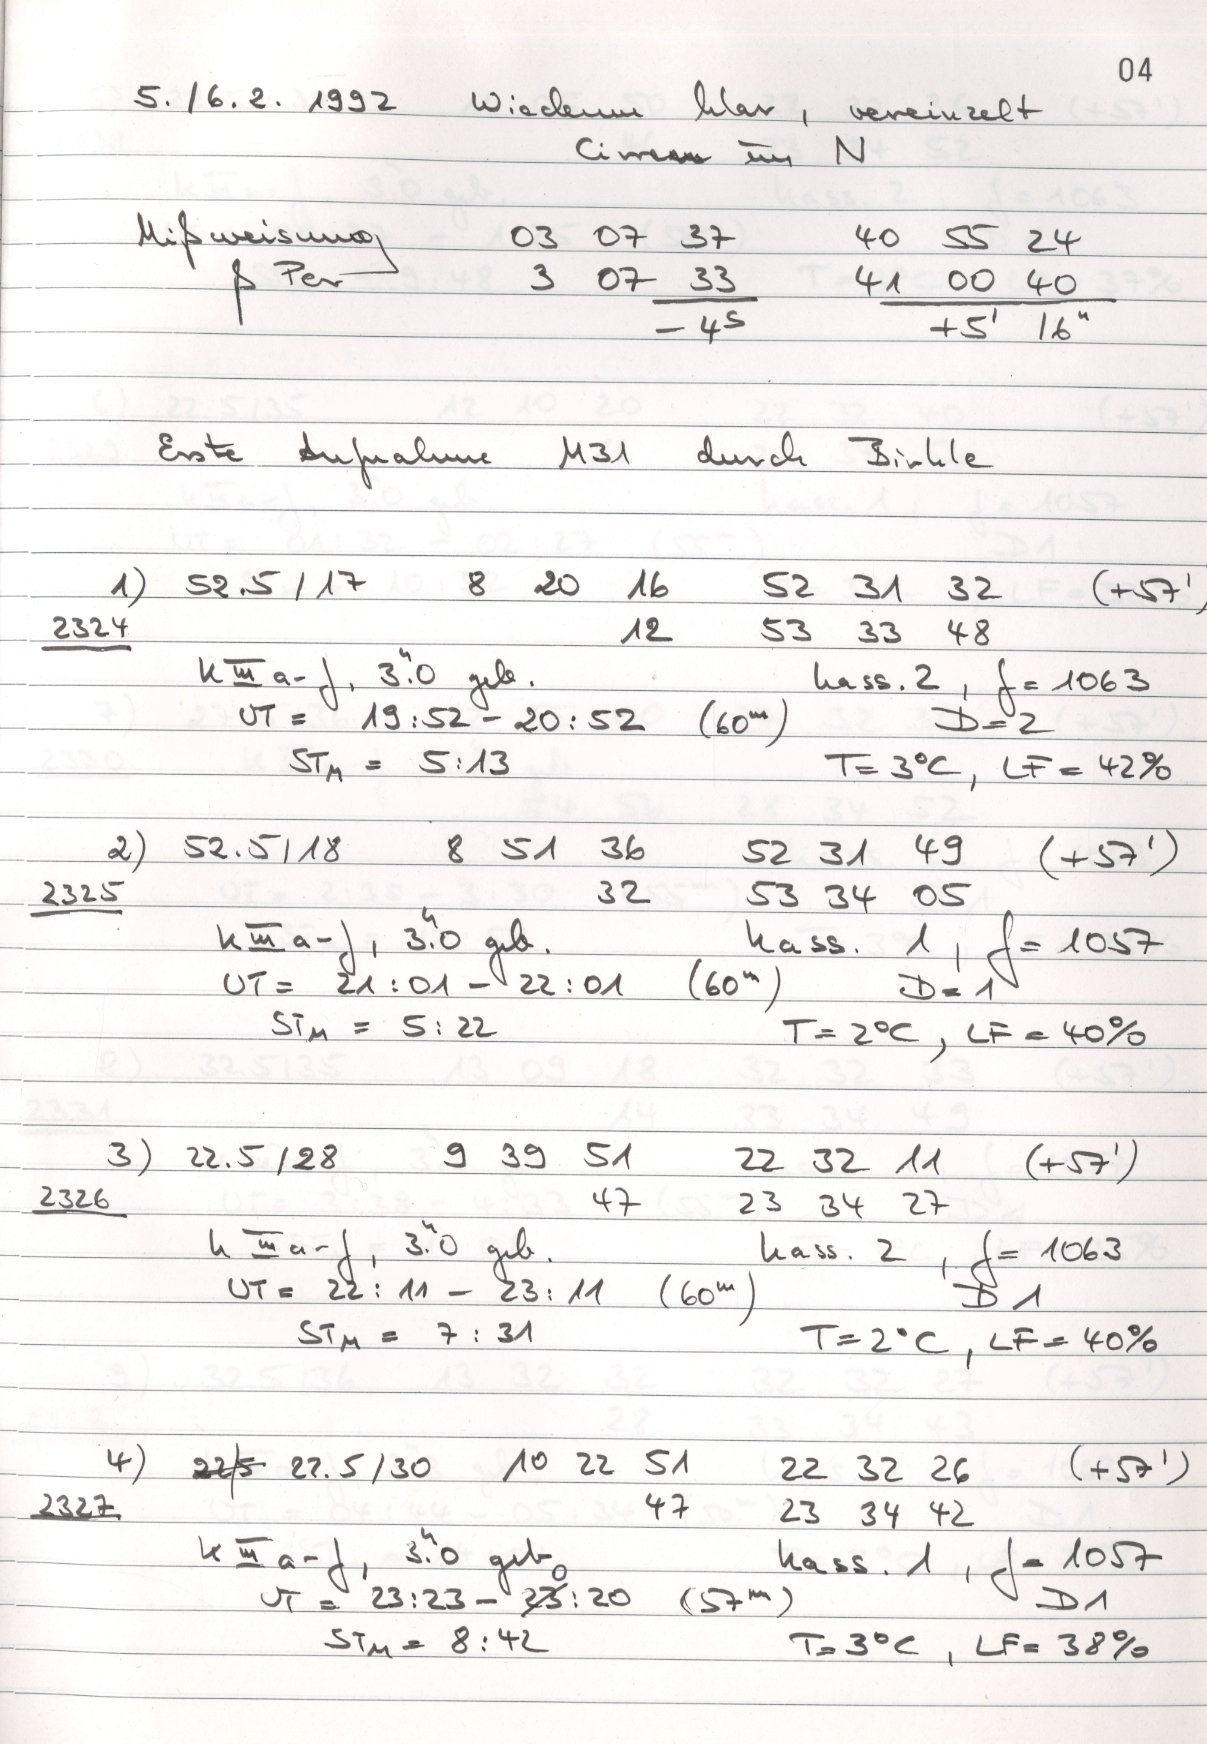 04
5./6.2. 1992 Wiederum klar, vereinzelt
Cirren im N
Mißweisung 03 07 37 40 55 24
β Per 3 07 33 41 00 40
-4s +5' 16"
Erste Aufnahme M31 durch Birkle
1) 52.5/17 8 20 16 52 31 32 (+57')
2324 12 53 33 48
k III a-f, 3."0 geb. Kass. 2, f = 1063
UT = 19:52 - 20:52 (60m) D=2
STM = 5:13 T= 3°C, LF = 42%
2) 52.5/18 8 51 36 52 31 49 (+57')
2325 32 53 34 05
k III a-f, 3."0 geb. Kass. 1, f = 1057
UT = 21:01 - 22:01 (60m) D=1
STM = 5:22 T= 2°C, LF = 40%
3) 22.5/28 9 39 51 22 32 11 (+57')
2326 47 23 34 27
k III a-f, 3."0 geb. Kass. 2, f = 1063
UT = 22:11 - 23:11 (60m) D 1
STM = 7:31 T=2°C, LF = 40%
4) 22.5/30 10 22 51 22 32 26 (+57')
2327 47 23 34 42
k III a-f, 3."0 geb. Kass. 1, f = 1057
UT = 23:23 - 0:20 (57m) D1
STM = 8:42 T= 3°C, LF= 38%